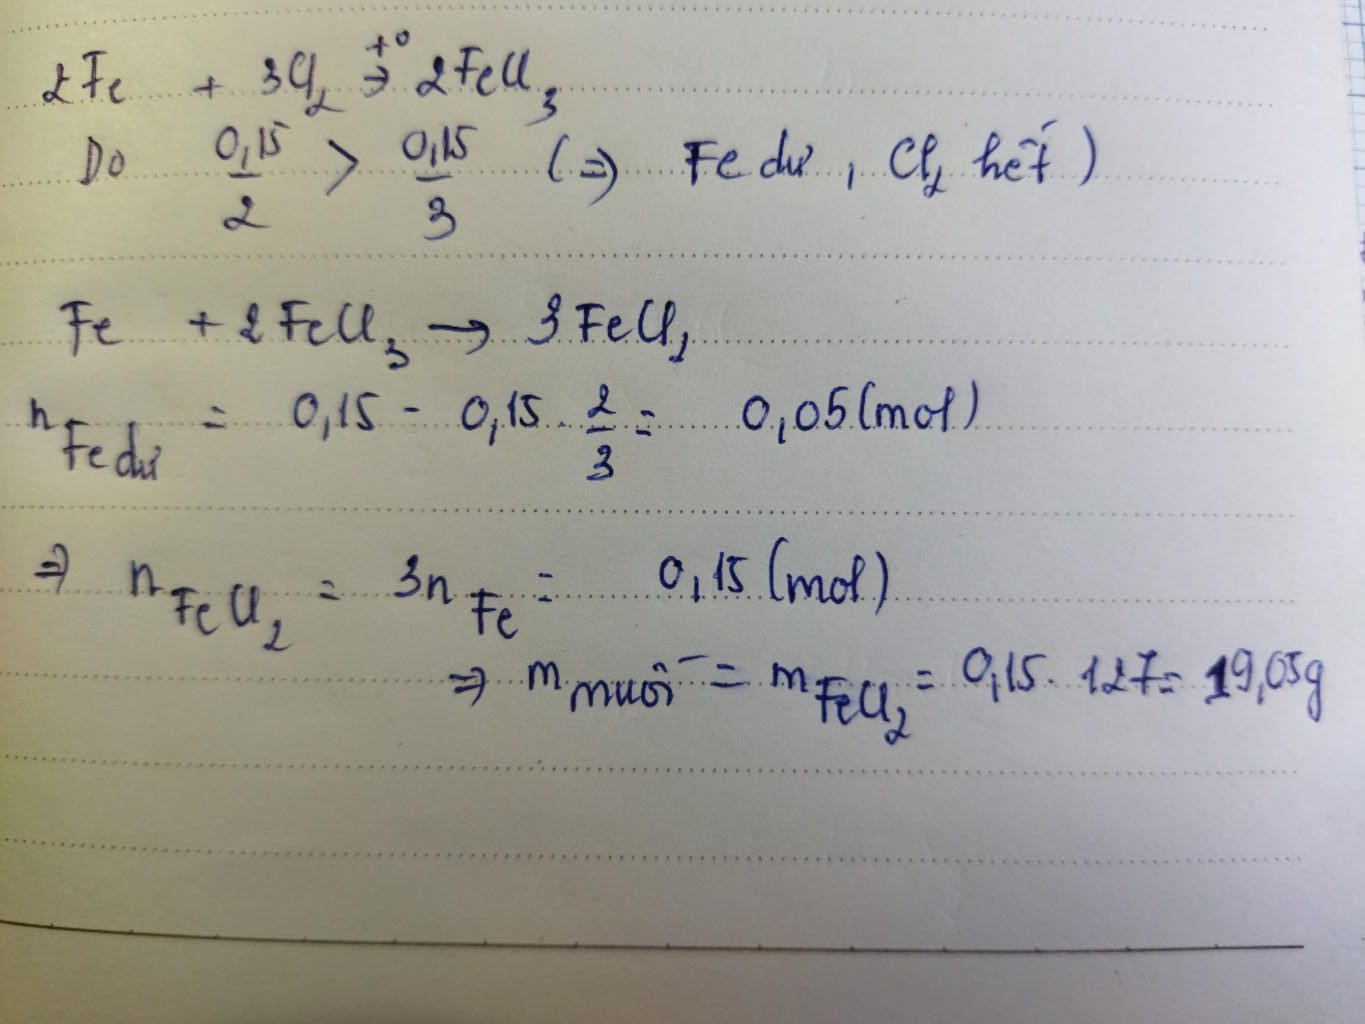 2Fe + 3Cl₂ →t° 2FeCl₃
Do 0,15/2 > 0,15/3 (⇒ Fe dư, Cl₂ hết)
Fe + 2FeCl₃ → 3FeCl₂
n Fe dư = 0,15 - 0,15 . 2/3 = 0,05 (mol)
⇒ n FeCl₂ = 3n Fe = 0,15 (mol)
⇒ m muối = m FeCl₂ = 0,15 . 127 = 19,05g